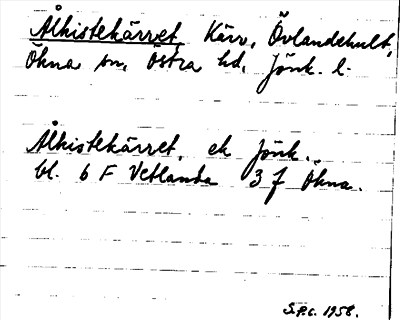 Ålkistekärret, Kärr, Övlandehult,
Ökna sn, Östra hd, Jönk. l.
Ålkistekärret, ek Jönk.
bl. 6 F Vetlanda 3 f Ökna.
S.P.C. 1958.